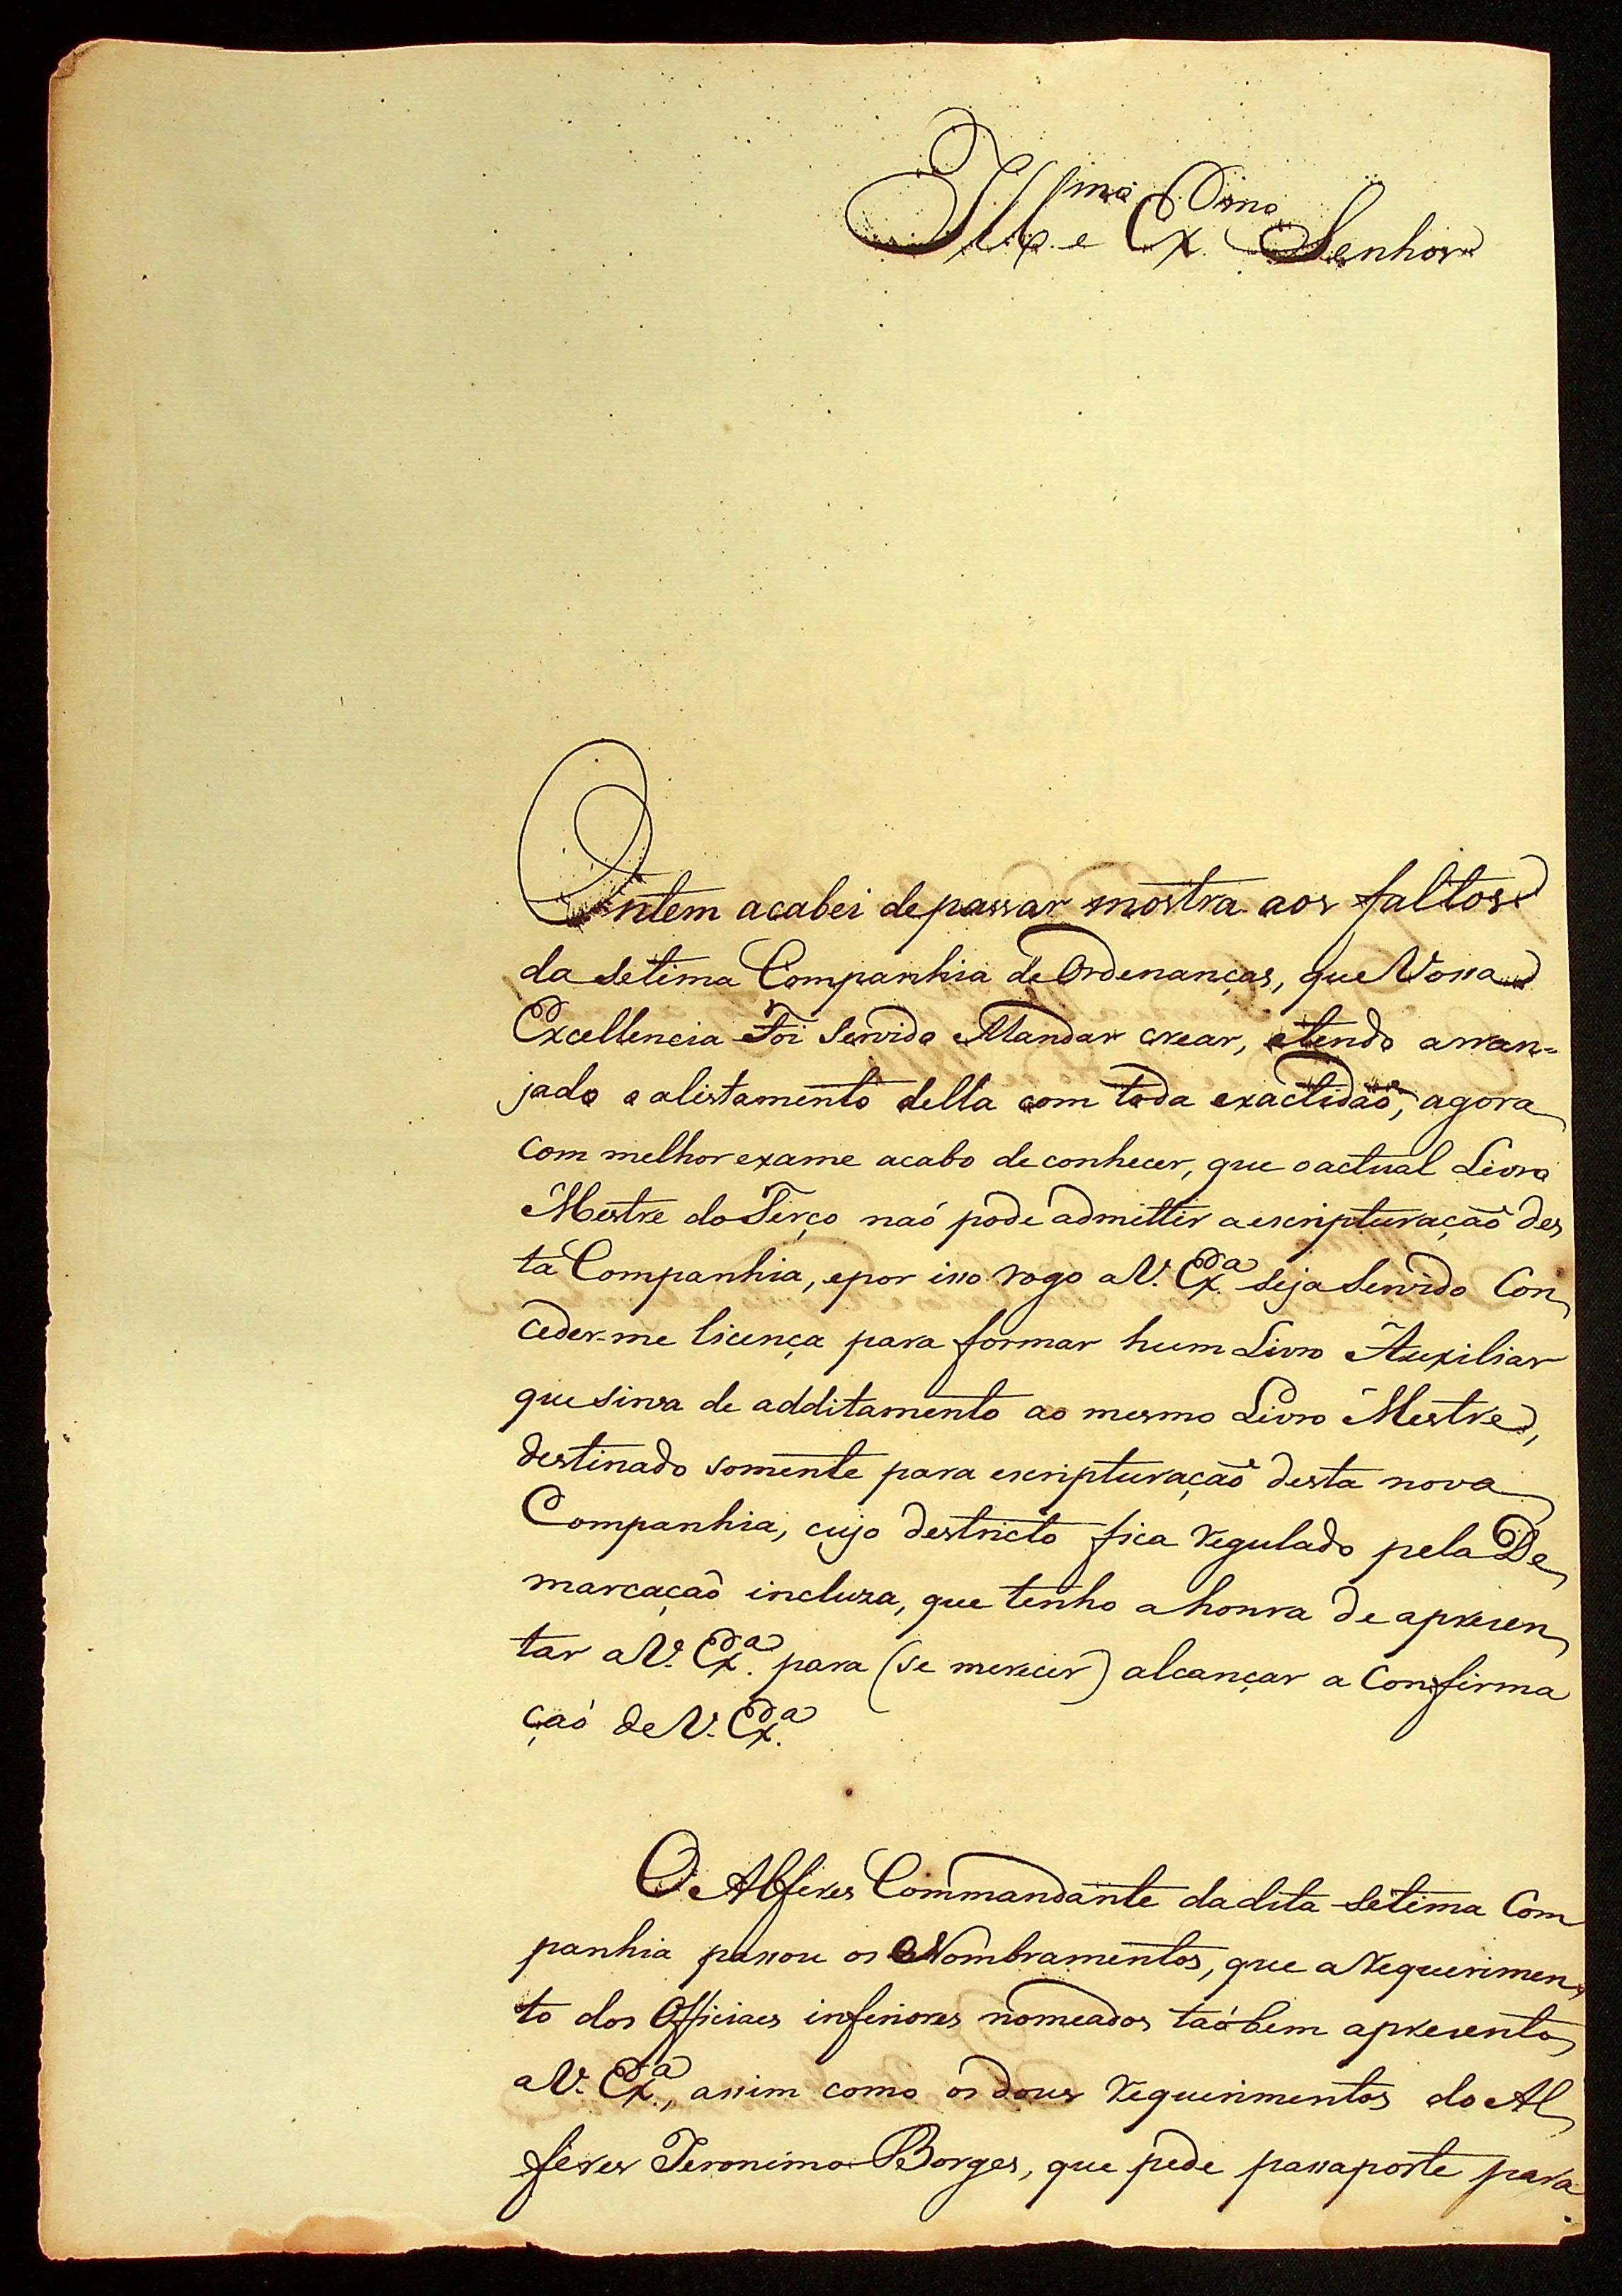 Ill.mo e Ex.mo Senhor
Ontem acabei de passar mostra aos faltos
da setima Companhia de Ordenanças, que Vossa
Excellencia Foi Servido Mandar crear, e tendo arran=
jado o alistamento della com toda exactidaõ, agora
com melhor exame acabo de conhecer, que o actual Livro
Mestre do Terço naõ pode admittir a escripturaçaõ des
ta Companhia, e por isso rogo a V. Ex.ª seja Servido Con
ceder-me licença para formar hum Livro Auxiliar
que sirva de additamento ao mesmo Livro Mestre,
destinado somente para escripturaçaõ desta nova
Companhia, cujo destricto fica regulado pela De
marcaçaõ incluza, que tenho a honra de apresen
tar a V. Ex.ª para (se merecer) alcançar a Confirma
çaõ de V. Ex.ª
O Alferes Commandante da dita setima Com
panhia passou os Nombramentos, que a requerimen
to dos Officiaes inferiores nomeados taõbem apresento
a V. Ex.ª, assim como os dous requerimentos do Al
feres Jeronimo Borges, que pede passaporte para